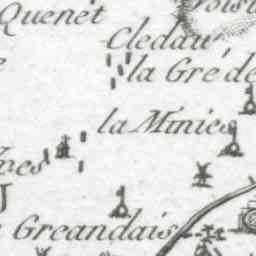 Quenét
Cledau
la Gré de
la Minies
Greandais